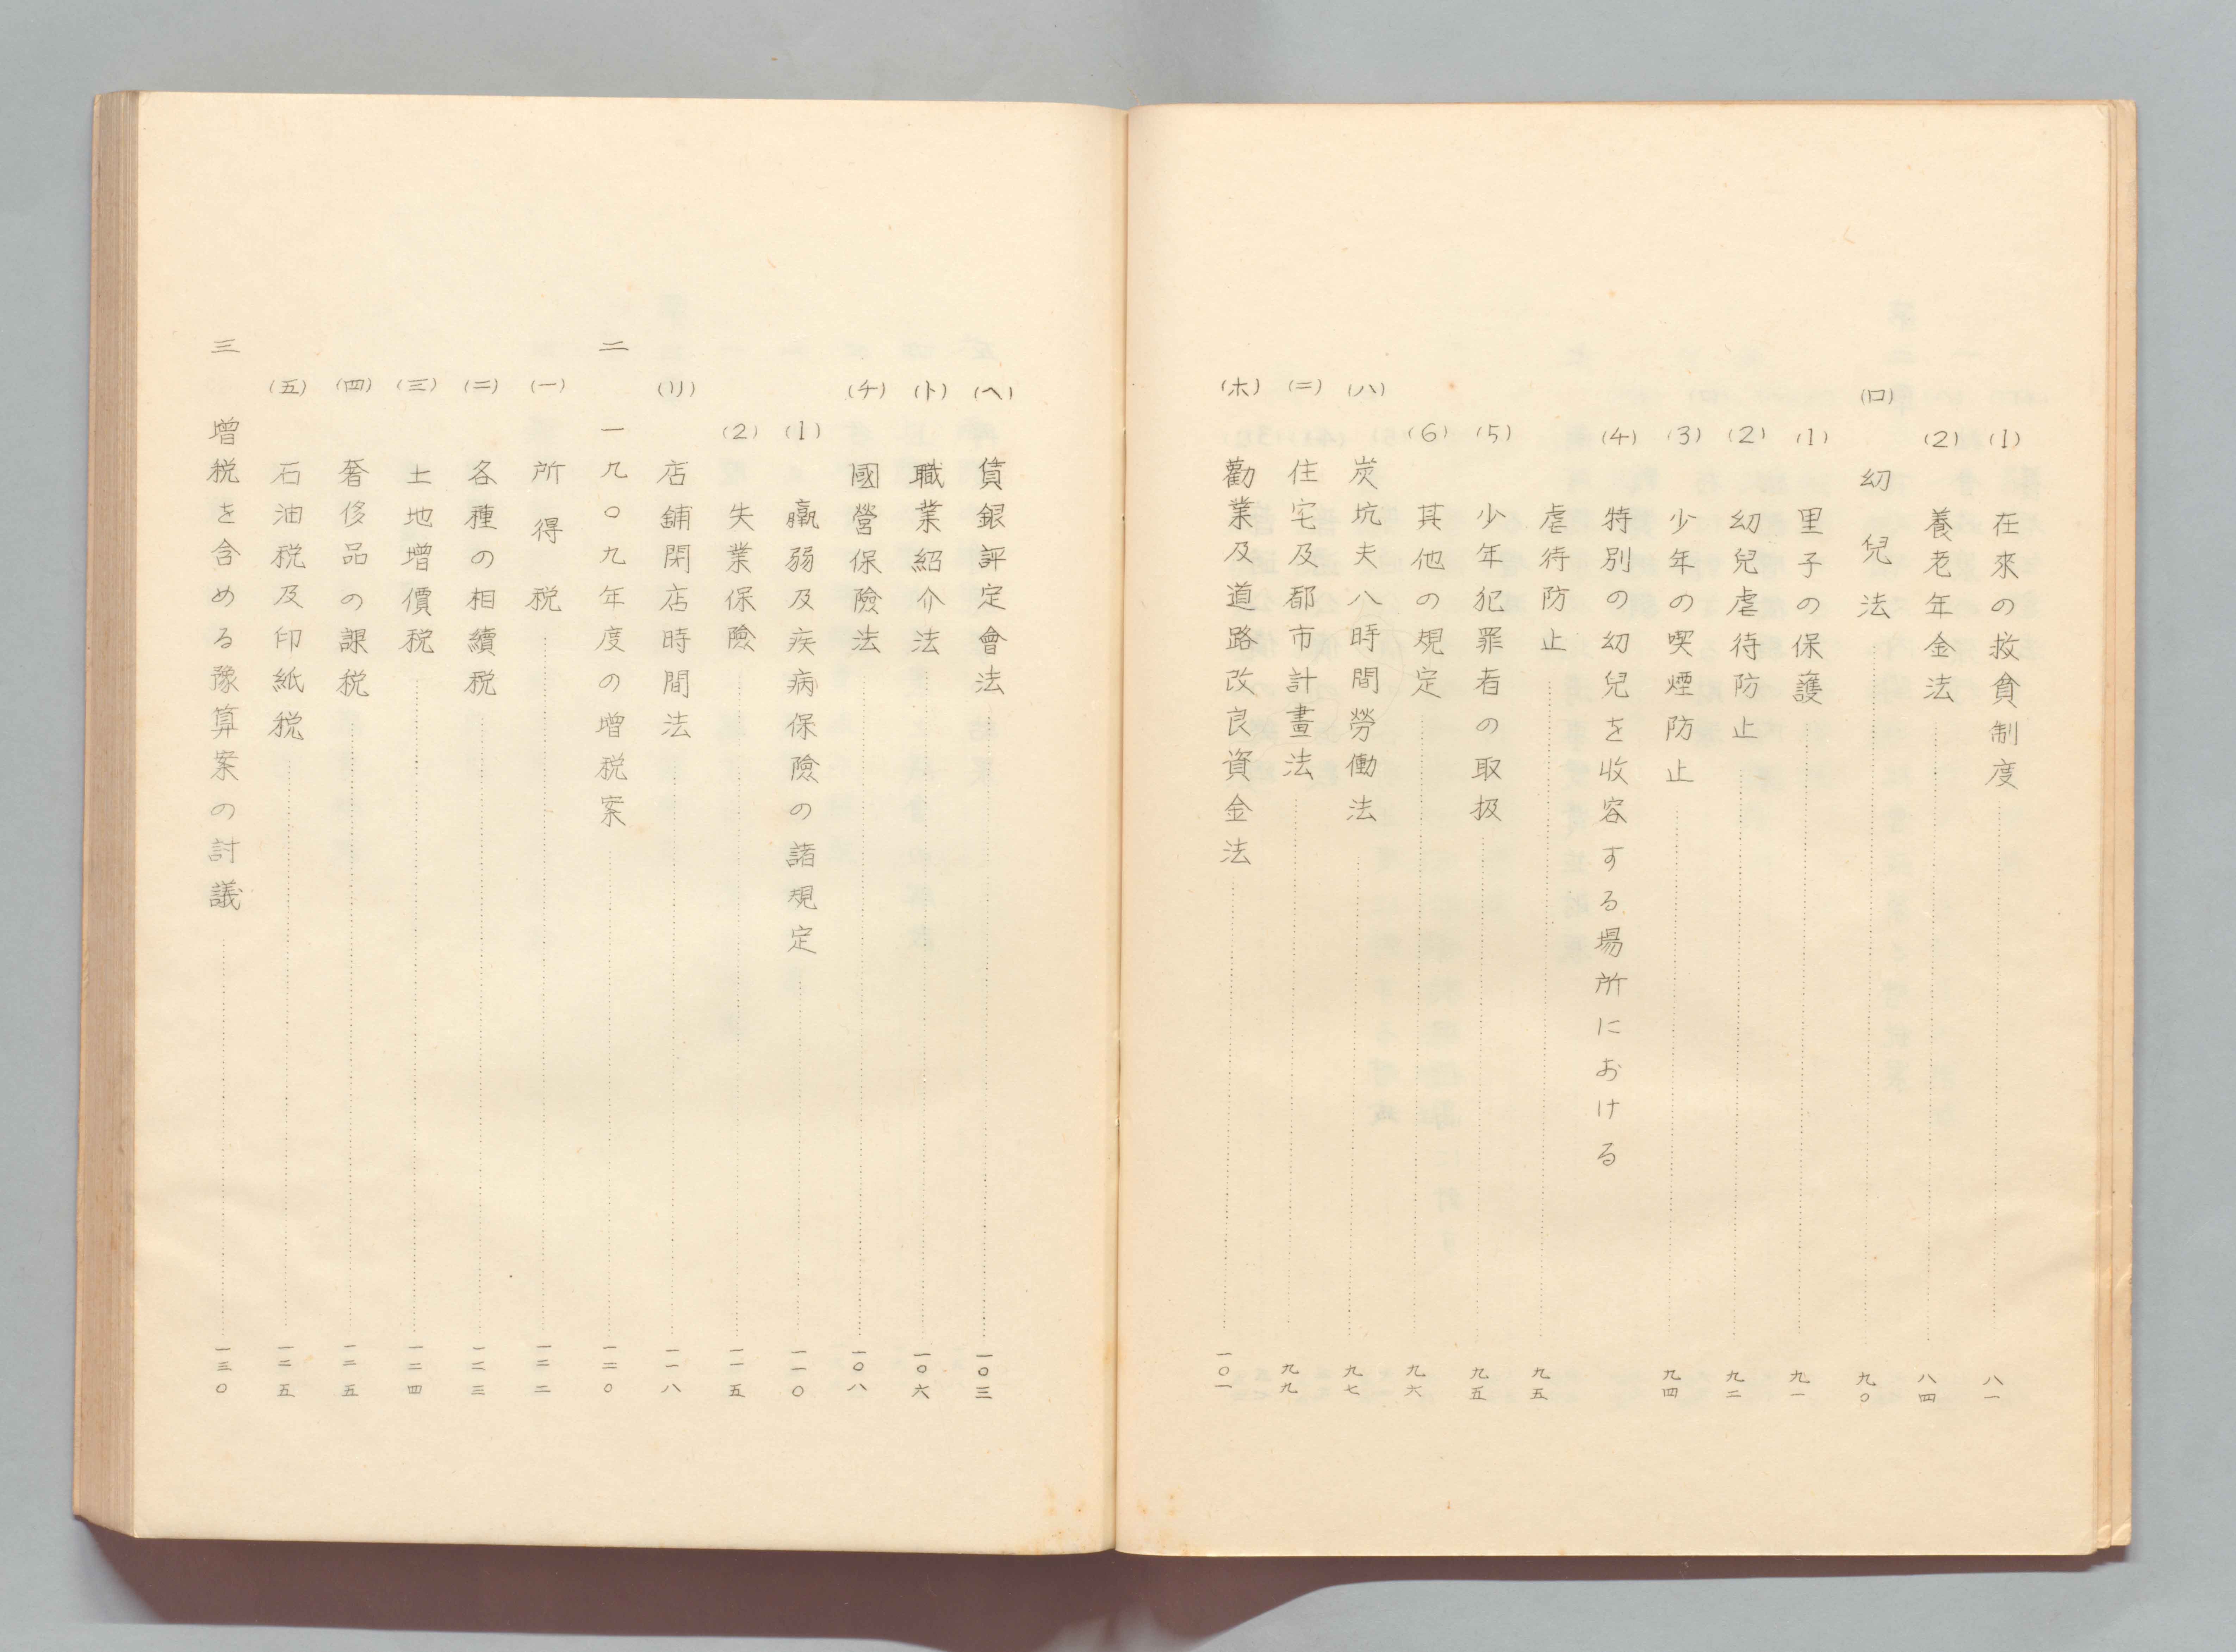 (1) 在來の救貧制度……八一
(2) 養老年金法……八四
(ロ) 幼兒法……九〇
(1) 里子の保護……九一
(2) 幼兒虐待防止……九二
(3) 少年の喫煙防止……九四
(4) 特別の幼兒を收容する場所における
虐待防止……九五
(5) 少年犯罪者の取扱……九五
(6) 其他の規定……九六
(ハ) 炭坑夫八時間勞働法……九七
(ニ) 住宅及都市計畫法……九九
(ホ) 勸業及道路改良資金法……一〇一
(ヘ) 賃銀評定會法……一〇三
(ト) 職業紹介法……一〇六
(チ) 國營保險法……一〇八
(1) 羸弱及疾病保險の諸規定……一一〇
(2) 失業保險……一一五
(リ) 店舖閉店時間法……一一八
二 一九〇九年度の增税案……一二〇
(一) 所得税……一二二
(二) 各種の相續税……一二三
(三) 土地增價税……一二四
(四) 奢侈品の課税……一二五
(五) 石油税及印紙税……一二五
三 增税を含める豫算案の討議……一三〇